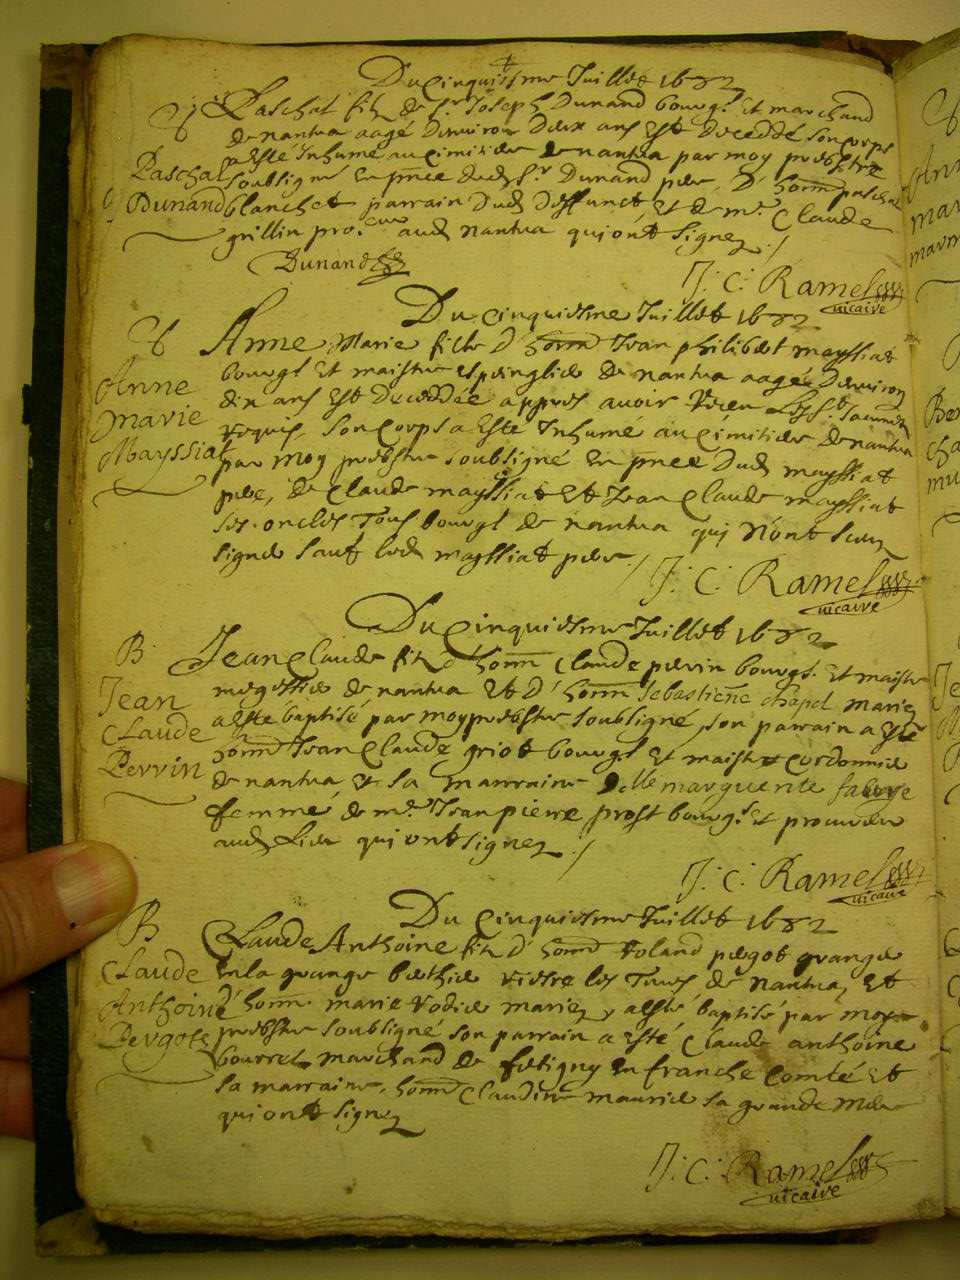 Du cinquiesme Juillet 1682
Paschal filz de Sr Joseph Dunand bourgs et marchand
de nantua aagé denviron deux ans est deceddé son corps
a esté Inhumé au cimitiere de nantua par moy prebstre
Paschal
Dunand
soubsigné en pnce dud Sr Dunand pere, d'honn paschal
blanchet parrain dud deffunct et de me Claude
grillin procur aud nantua qui ont signez ./
Dunand
J: C: Ramel
vicaire
Du cinquiesme Juillet 1682
Anne Marie fille d'honn Jean philibert mayssiat
Anne
Marie
Mayssiat
bourgs et maistre espinglier de nantua aagée denviron
dix ans est deceddée appres avoir receu les Sts sacrem
requis, son corps a esté Inhumé au cimitiere de nantua
par moy prebstre soubsigné en pnce dud mayssiat
pere, de Claude mayssiat et Jean Claude mayssiat
ses oncles tous bourgs de nantua qui n'ont sceu
signer sauf led mayssiat pere ./
J: C: Ramel
vicaire
Du cinquiesme Juillet 1682
B
Jean
Claude
Perrin
Jean Claude filz d'honn Claude perrin bourgs et maistre
megissier de nantua et d'honn sebastienne chapel mariez
a esté baptisé par moy prebstre soubsigné, son parrain a esté
honn Jean Claude griot bourgs et maistre cordonnier
de nantua et sa marraine dlle marguerite
femme de me Jean pierre prost bourgs et procureur
aud lieu qui ont signez ./
J: C: Ramel
vicaire
Du cinquiesme Juillet 1682
B
Claude
Anthoine
Pergots
Claude Anthoine filz d'honn roland pergot granger
en la grange berthier rierre les Tures de nantua, et
d'honn marie rodier mariez, a esté baptisé par moy
prebstre soubsigné son parrain a esté Claude anthoine
bourret marchand de fetigny en franche comté et
sa marraine, honn Claudine maurier sa grande mere
qui ont signez
J: C: Ramel
vicaire